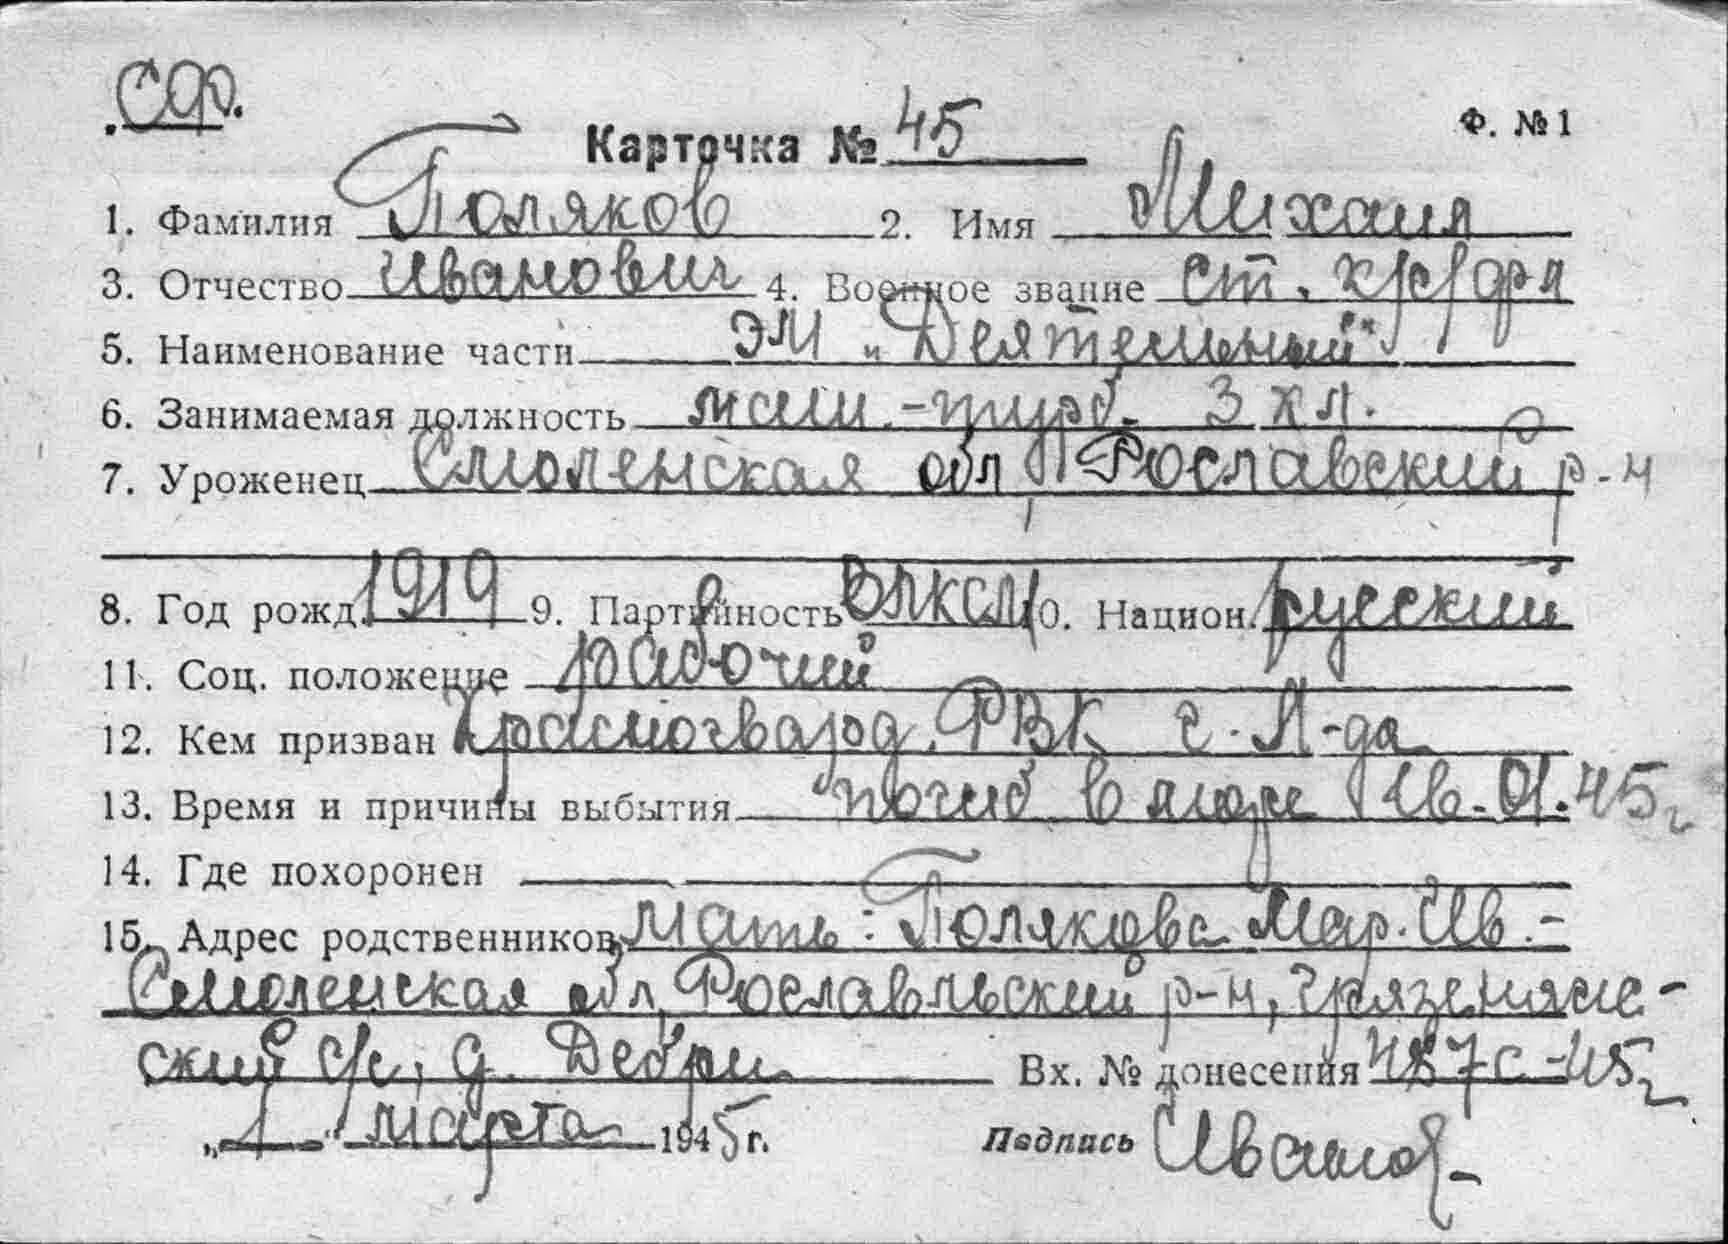 СФ.
Карточка № 45 Ф. № 1
1. Фамилия Поляков 2. Имя Михаил
3. Отчество Иванович 4. Военное звание ст. к/с/фл
5. Наименование части ЭМ „Деятельный"
6. Занимаемая должность маш.-турб. 3 кл.
7. Уроженец Смоленская обл, Рославский р-н
8. Год рожд. 1919 9. Партийность ВЛКСМ 10. Национ. русский
11. Соц. положение рабочий
12. Кем призван Красногвард. РВК г. Л-да
13. Время и причины выбытия погиб в море 16.01.45 г
14. Где похоронен
15. Адрес родственников Мать: Полякова Мар. Ив. -
Смоленская обл, Рославльский р-н,
ский с/с, д. Дебри Вх. № донесения 487с-45 г
„1" марта 1945 г. Подпись Иванов